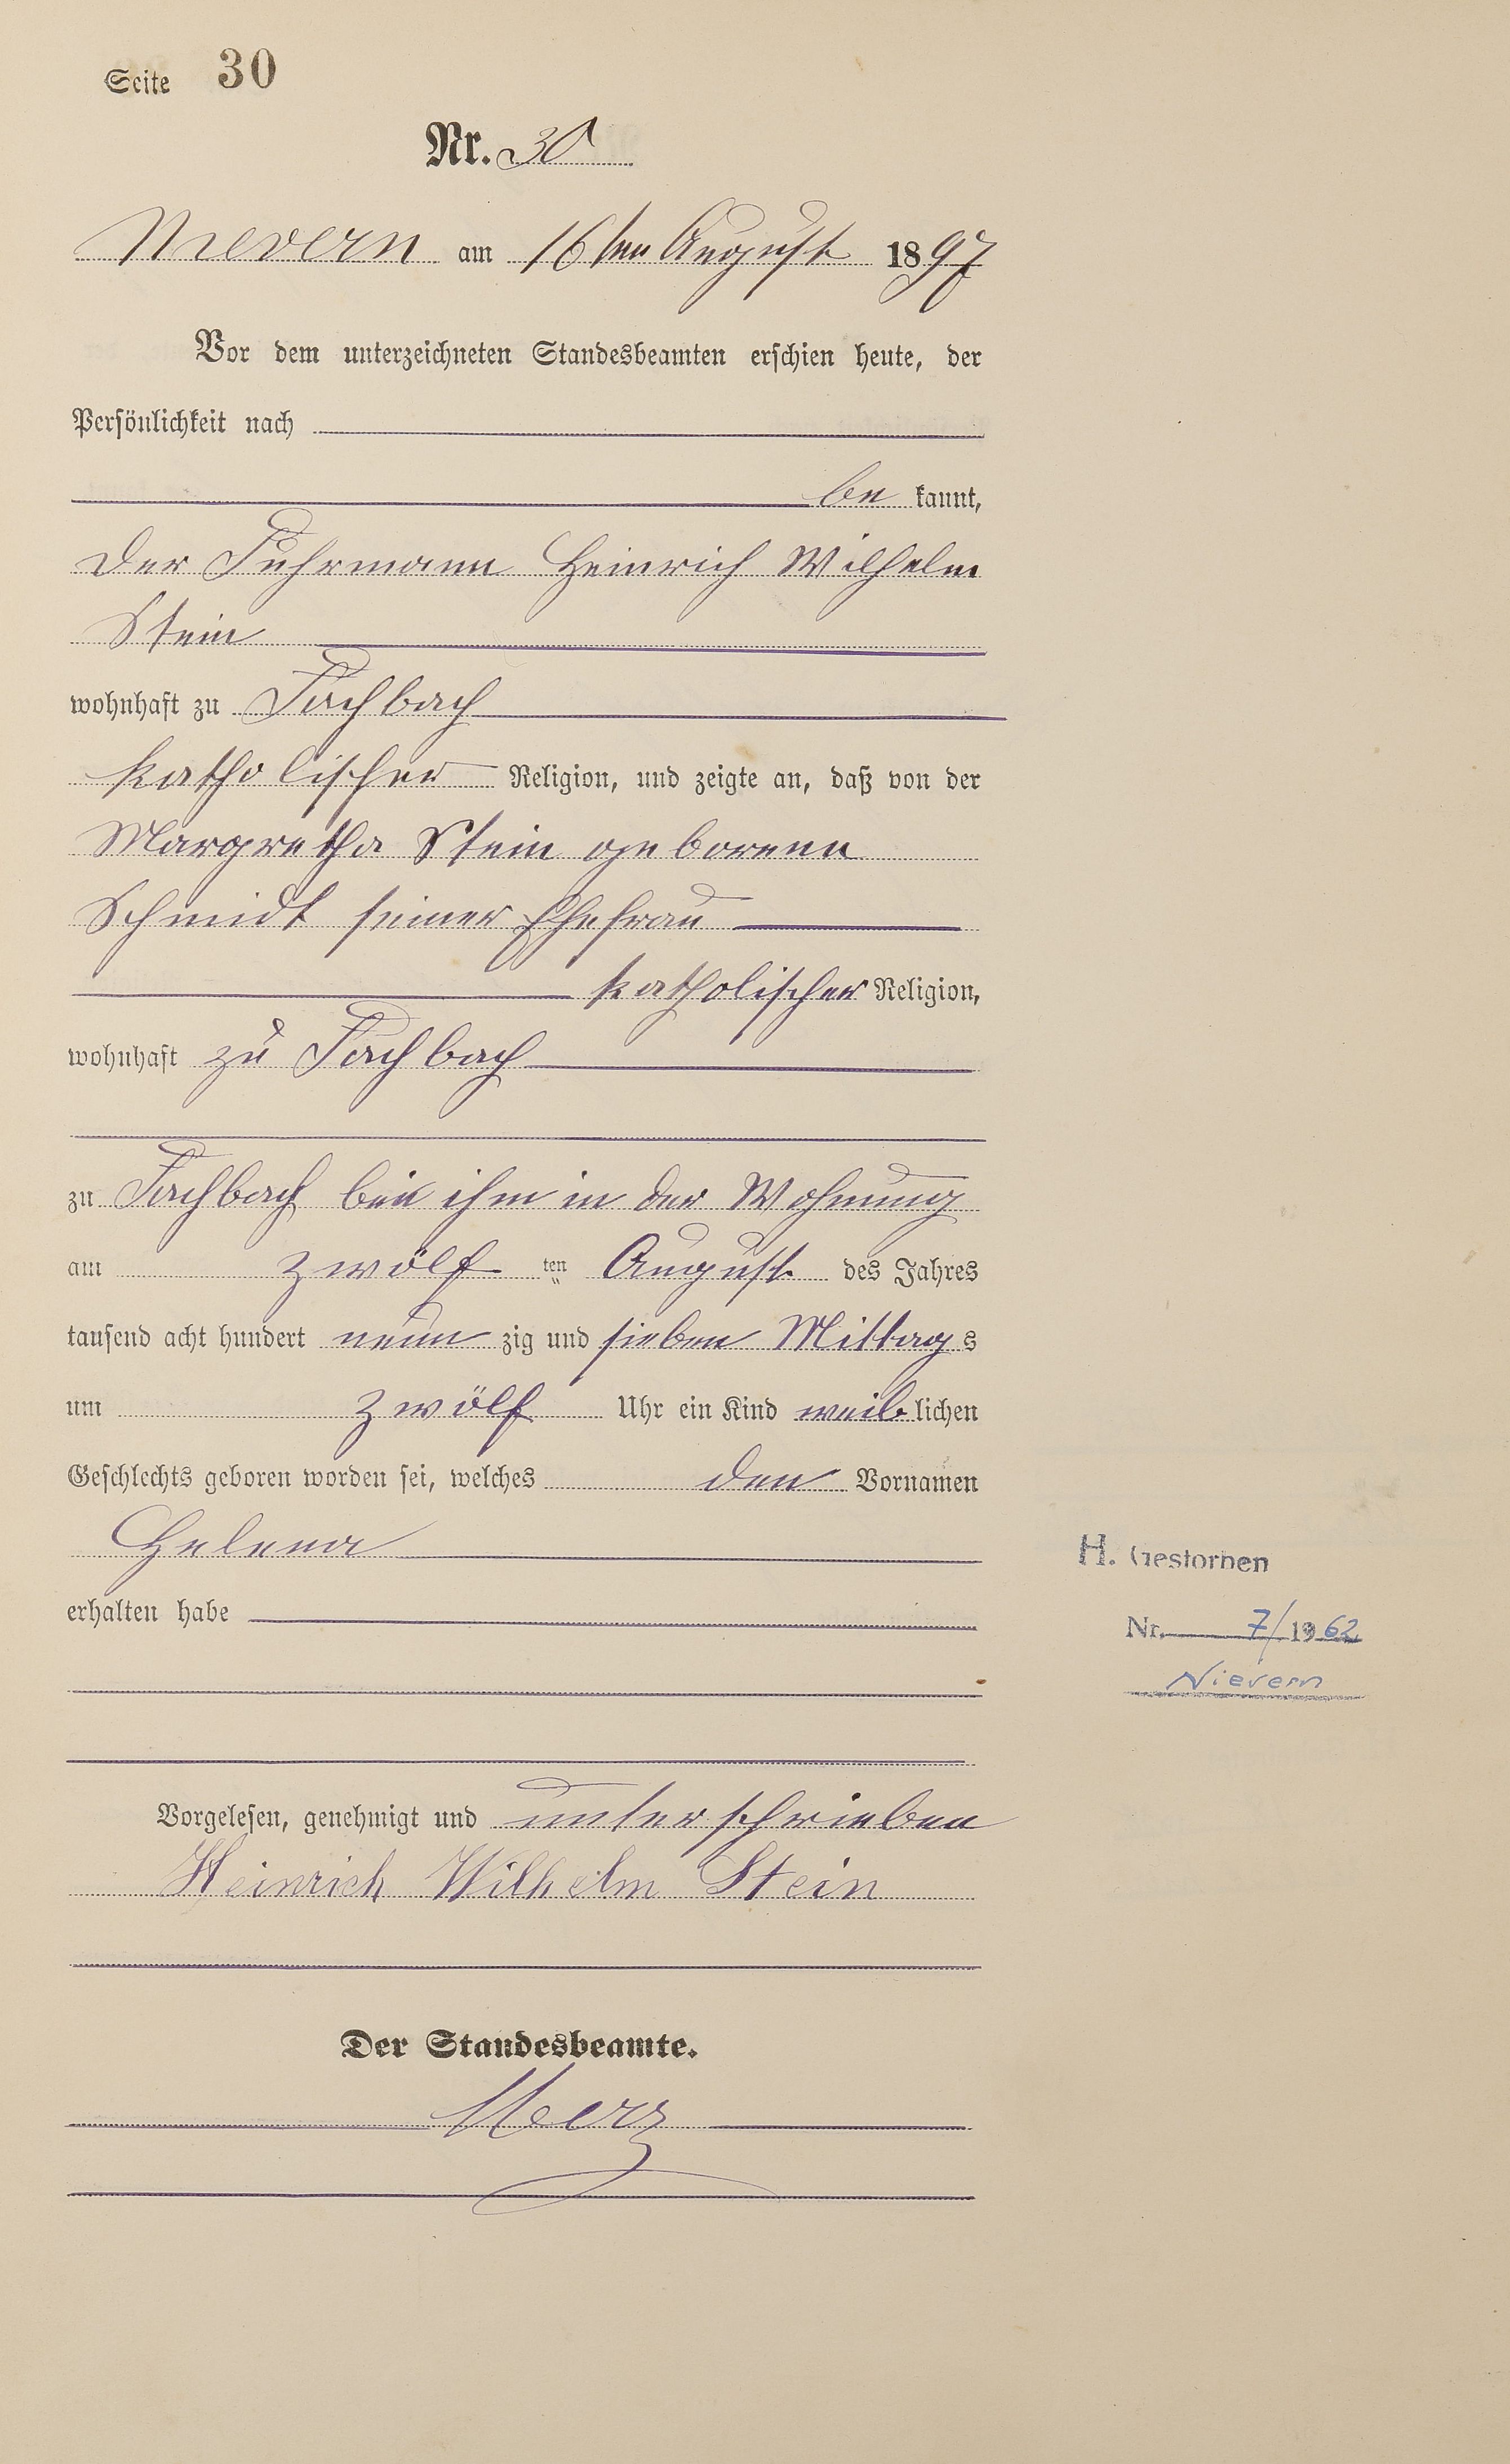 Seite 30
Nr. 30
Nievern am 16ten August 1897
Vor dem unterzeichneten Standesbeamten erschien heute, der
Persönlichkeit nach
be kannt,
der Fuhrmann Heinrich Wilhelm
Stein
wohnhaft zu Fachbach
katholischer Religion, und zeigte an, daß von der
Margretha Stein geborene
Schmidt seiner Ehefrau
katholischer Religion,
wohnhaft zu Fachbach
zu Fachbach bei ihm in der Wohnung
am zwölf ten August des Jahres
tausend acht hundert neun zig und sieben Mittag s
um zwölf Uhr ein Kind weib lichen
Geschlechts geboren worden sei, welches den Vornamen
Helena
H. Gestorben
erhalten habe
Nr. 7/1962
Nievern
Vorgelesen, genehmigt und unterschrieben
Heinrich Wilhelm Stein
Der Standesbeamte.